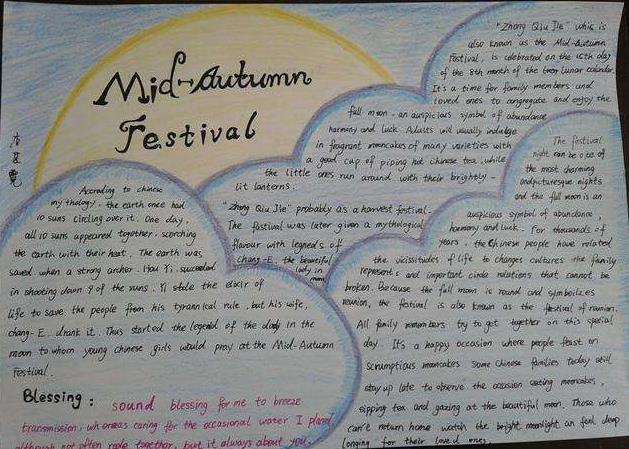 Mid-Autumn
Festival
"Zhong Qiu Jie" whic is
also known as the Mid-Autumn
Festival, is celebrated on the 15th day
of the 8th month of the lunar calendar.
It's a time for family members and
loved ones to congregate and enjoy the
full moon - an auspicious symbol of abundance
harmony and luck. Adults will usually indulge
in fragrant mooncakes of many varieties with
a good cup of piping hot chinese tea, while
the little ones run around with their brightly-
lit lanterns.
"Zhong Qiu Jie" probably as a harvest festival.
The fastival was later given a mythological
flavour with legneds of
Chang-E, the beautiful
lady in
moon
According to chinese
mythology, the earth once had
10 suns circling over it. One day,
all 10 suns appeared together, scorching
the earth with their heat. The earth was
saved when a strong archer, Hou Yi, succeeded
in shooting down 9 of the suns. Yi stole the elixir of
life to save the people from his tyrannical rule, but his wife,
chang-E drank it. Thus started the legend of the lady in the
moon to whom young Chinese girls would pray at the Mid-Autumn
Festival.
The festival
night can be one of
the most charming
and picturesque nights
and the full moon is an
auspicious symbol of abundance,
harmony and luck. For thousands of
years, the Chinese people have related
the vicissitudes of life to changes cultures the family
represents and important circle relations that cannot be
broken. Because the full moon is round and symbolizes
reunion, the festival is also known as the festival of reunion.
All family members try to get together on this special
day. It's a happy occasion where people feast on
scrumptious mooncakes some Chinese families today still
stay up late to observe the occasion eating mooncakes,
sipping tea and gazing at the beautiful moon. Those who
can't return home watch the bright moonlight an feel deep
longing for their loved ones.
Blessing: sound blessing for me to breeze
transmission, whereas caring for the occasional water I
although not often together, but it always about you.